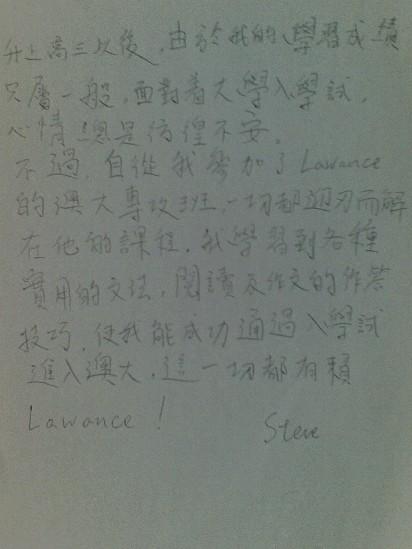 升上高三以後，由於我的學習成績
只屬一般，面對着大學入學試，
心情總是彷徨不安。
不過，自從我參加了Lawance
的澳大專攻班，一切都迎刃而解
在他的課程，我學習到各種
實用的文法，閱讀及作文的作答
技巧，使我能成功通過入學試
進入澳大，這一切都有賴
Lawance！
Steve